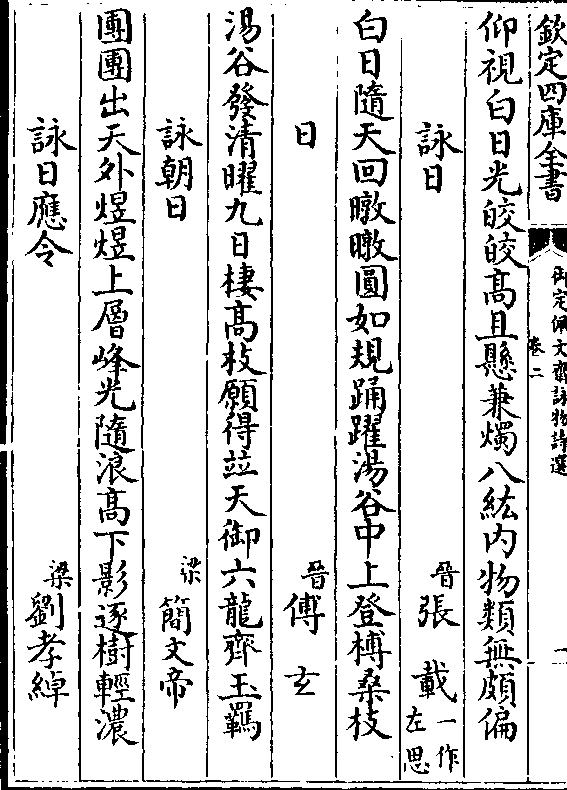 欽定四庫全書
御定佩文齋詠物詩選
卷二
一
仰視白日光皎皎髙且懸兼燭八紘内物類無頗偏
詠日
晉張載一作左思
白日隨天回暾暾圓如規踊躍湯谷中上登榑桑枝
日
晉傅玄
湯谷發清曜九日棲髙枝願得竝天御六龍齊玉羈
詠朝日
梁簡文帝
團團出天外煜煜上層峰光隨浪髙下影逐樹輕濃
詠日應令
梁劉孝綽